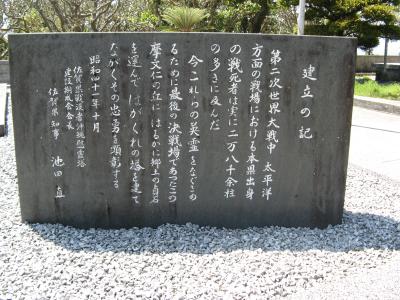 建立の記
第二次世界大戦中 太平洋
方面の戦場における本県出身
の戦死者は実に二万八千余柱
の多きに及んだ
今これらの英霊をなぐさめ
るために最後の決戦場であったこの
摩文仁の丘にはるかに郷土の貞石
を運んではがくれの塔を建て
ながくその忠勇を顕彰する
昭和四十一年十月
佐賀県戦没者沖縄慰霊塔
建設期成会会長
佐賀県知事 池田 直